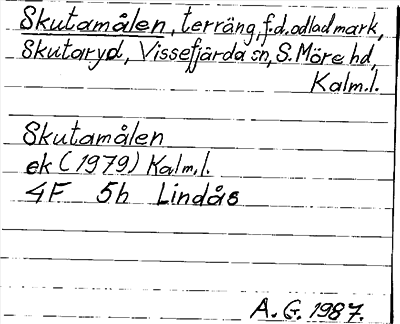 Skutamålen, terräng, f.d. odlad mark,
Skutaryd, Vissefjärda sn, S. Möre hd,
Kalm.l.
Skutamålen
ek (1979) Kalm.l.
4F 5h Lindås
A. G. 1987.